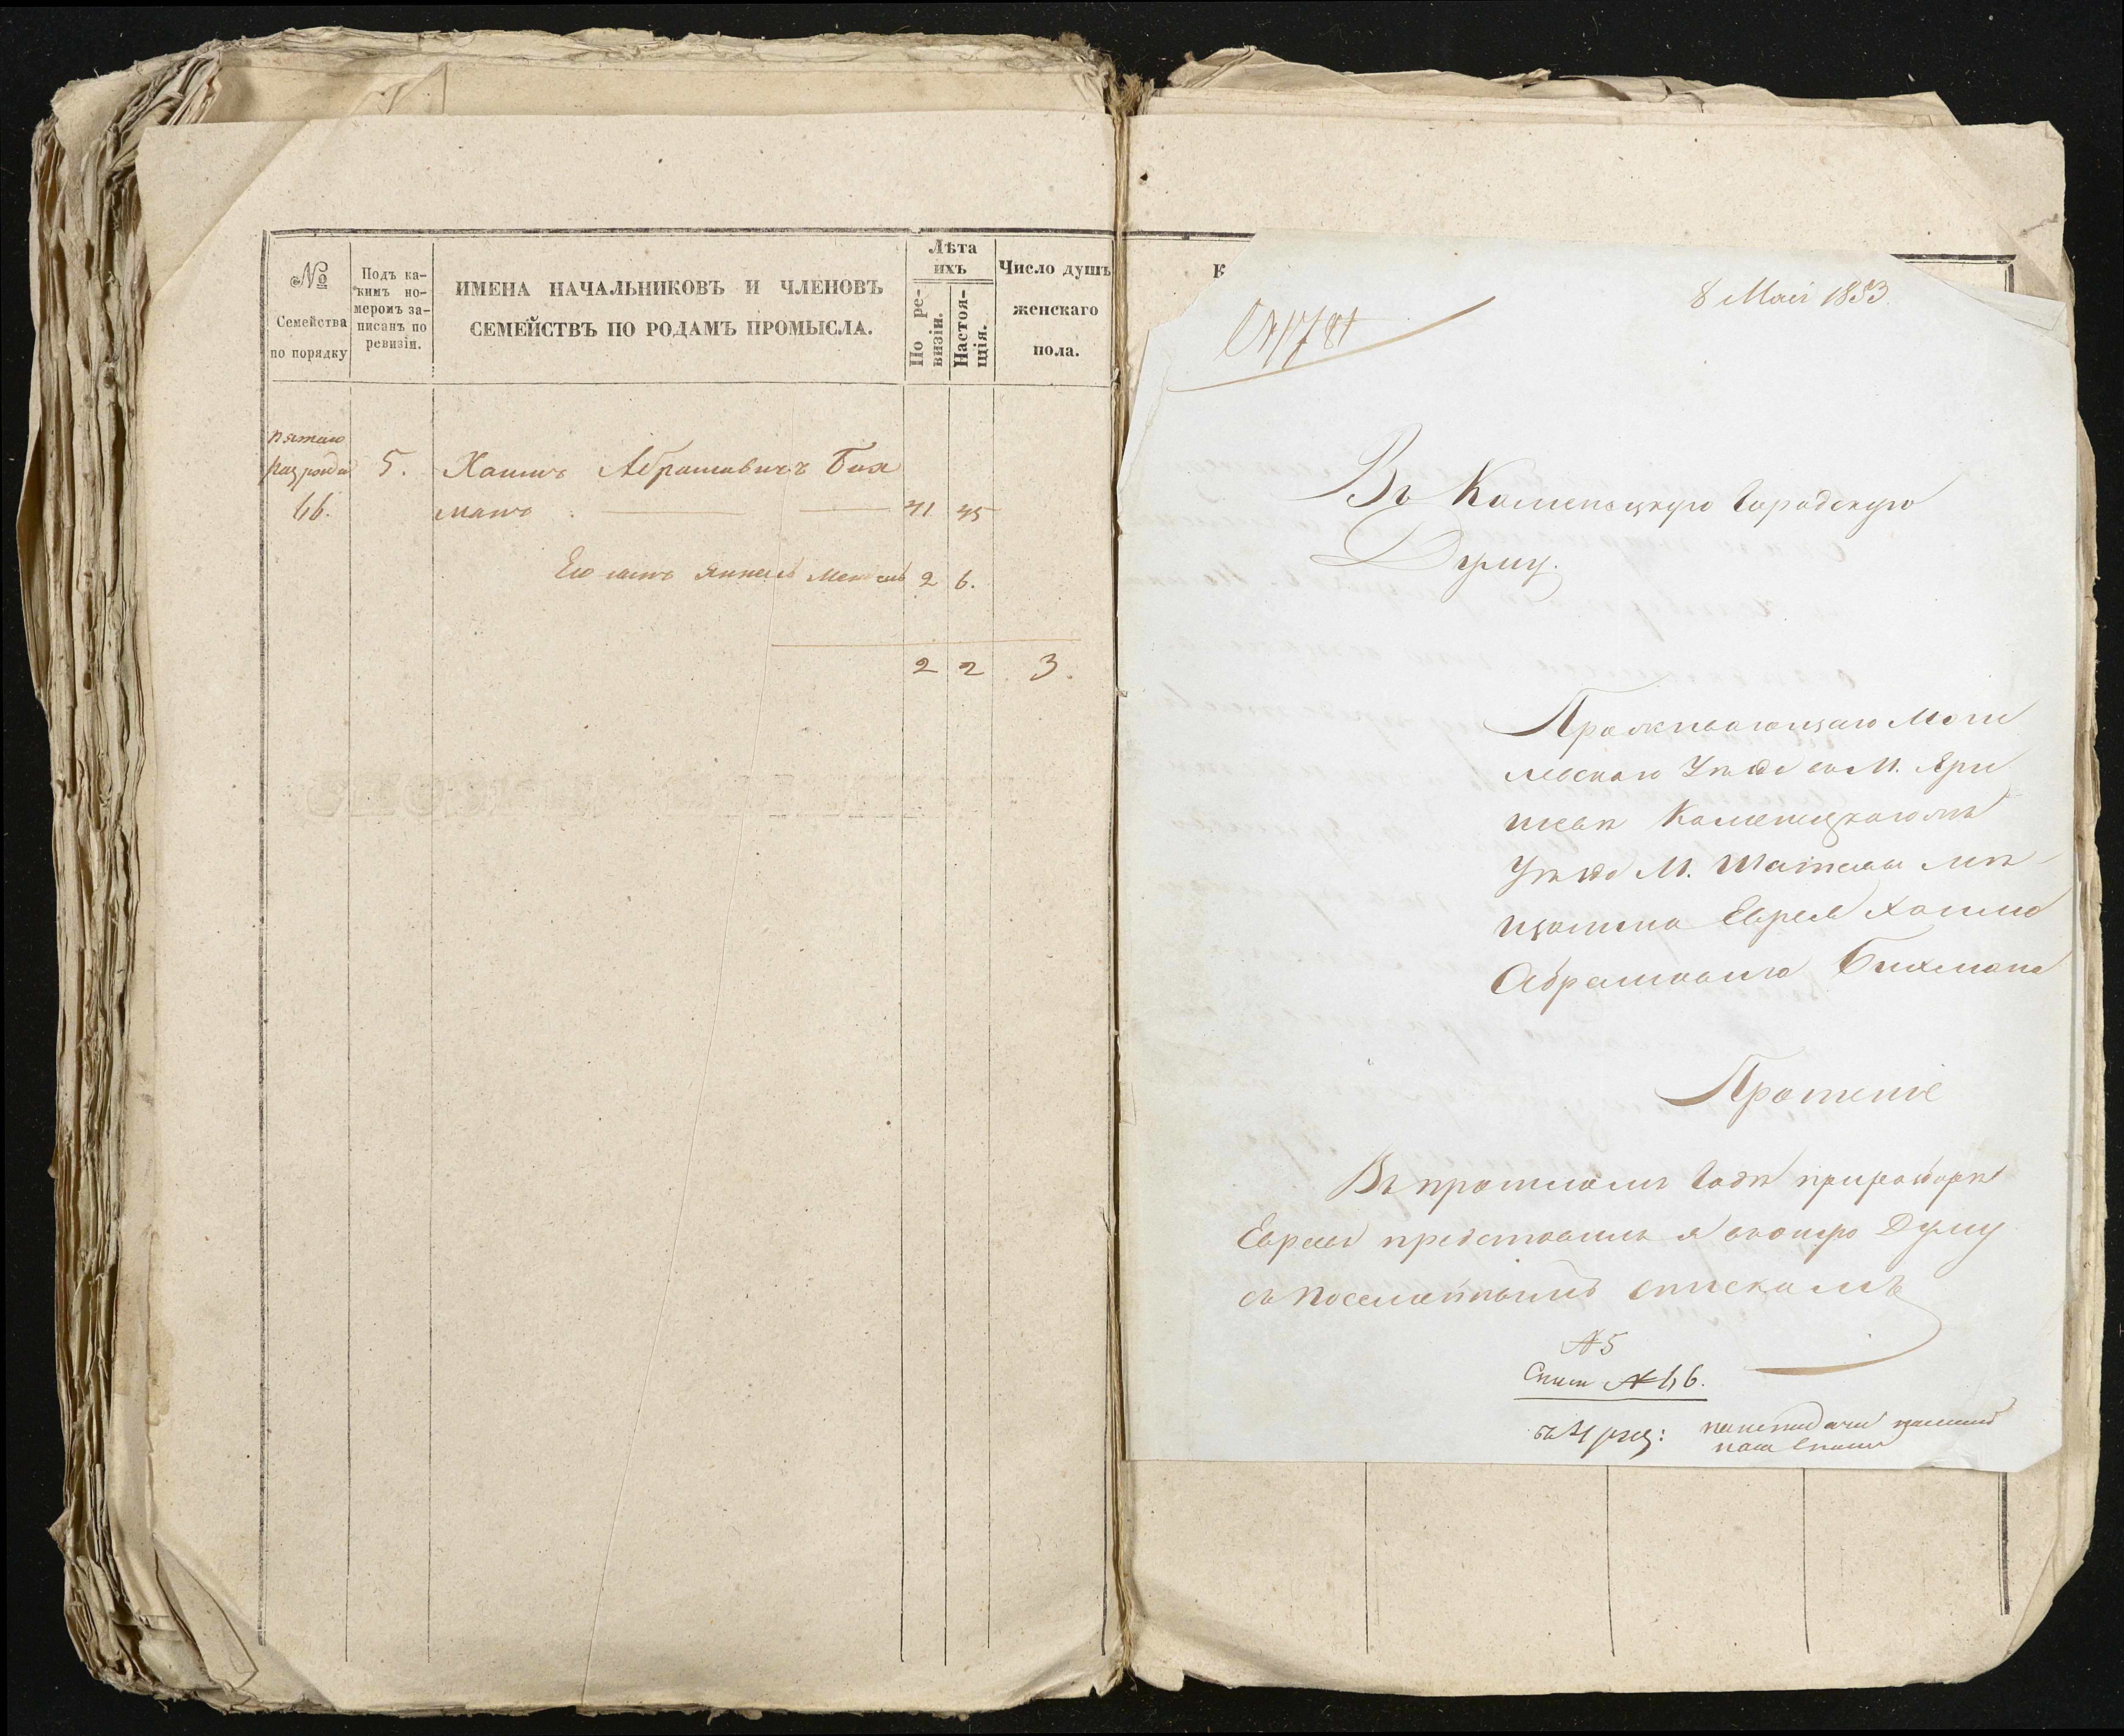 №
Семейства
по порядку
Подъ ка-
кимъ но-
меромъ за-
писанъ по
ревизіи.
ИМЕНА НАЧАЛЬНИКОВЪ И ЧЛЕНОВЪ
СЕМЕЙСТВЪ ПО РОДАМЪ ПРОМЫСЛА.
Лѣта
ихъ
По ре-
визіи.
Настоя-
щія.
Число душъ
женскаго
пола.
пятаго
разряда 5. Хаимъ Абрамовичъ Бих
46. манъ 41 45
Его сынъ Янкель 2 6.
2 2 3.
К
8 Мая 1853.
Въ Каменецкую Городскую
Думу.
Проживающаго Моги
левскаго Уѣзда въ М. Яры
шевѣ Каменецкаго
Уѣзда М. мѣ
щанина Еврея Хаима
Абрамовича Бихмана
Прошеніе
Въ прошломъ Годѣ при разборѣ
Евреевъ представилъ я въ оную Думу
съ Посемейнымъ спискомъ
№ 5
№ 46.